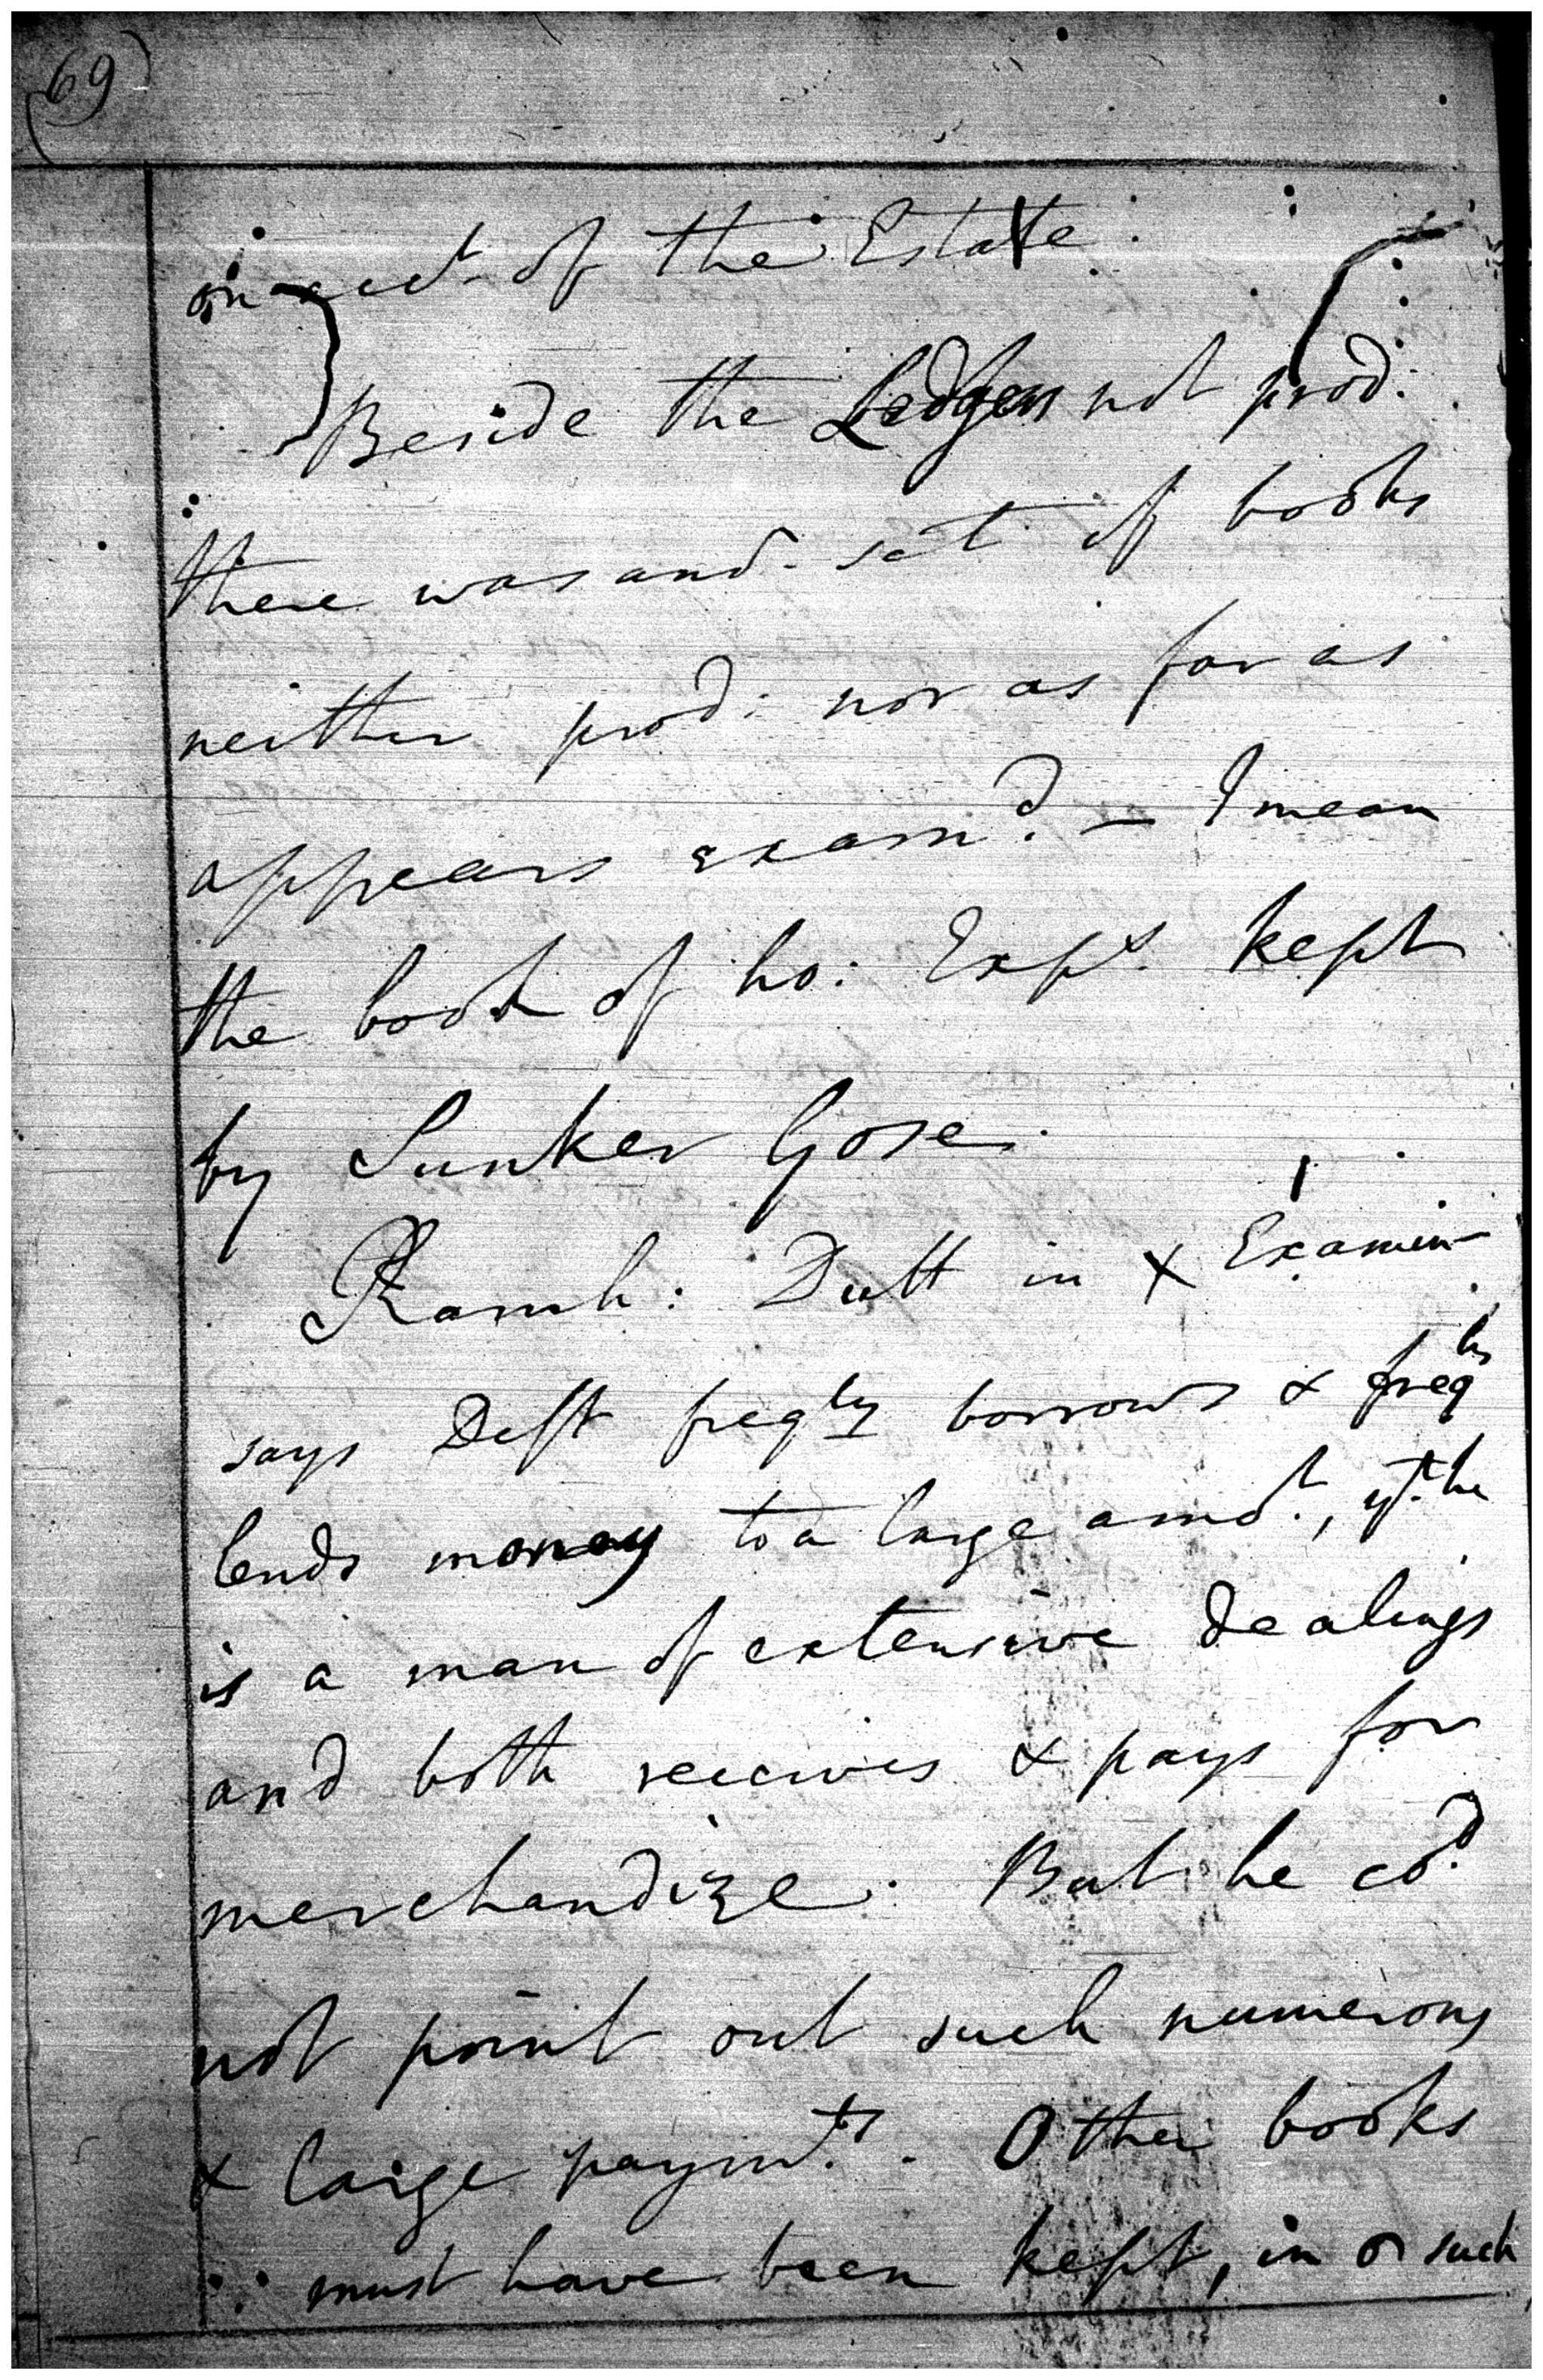 69
on acct of the Estate.
Beside the Ledgers not prod.
there was anor. set of books
neither prod: nor as far as
appears examd. — I mean
the book of ho: Exps. kept
by Sunker Gose.
Ramh: Dutt in X Examin-
says Deft freqly borrows & freqly
lends money to a large amot., yt. he
is a man of extensive dealings
and both receives & pays for
merchandize. But he cod.
not point out such numerous
& large paymts. Other books
∴ must have been kept, in such